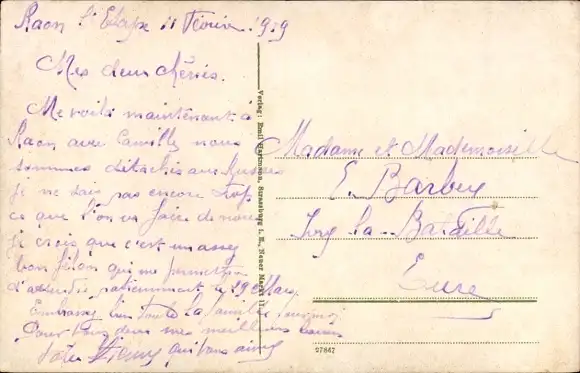 Raon l'Etape 11 Février 1919
Mes deux chéries.
Me voilà maintenant à
Raon avec Camille nous
sommes détachés aux
je ne sais pas encore trop
ce que l'on va faire de nous
je crois que c'est un assez
bon filon qui me permettra
d'attendre patiemment le 29 Mars
toute la famille
Pour vous deux mes meilleurs
Votre qui vous aime
Verlag: Emil Hartmann, Strassburg i. E., Neuer Markt 11
Madame et Mademoiselle
E. Barbey
Ivry-la-Bataille
Eure
27847